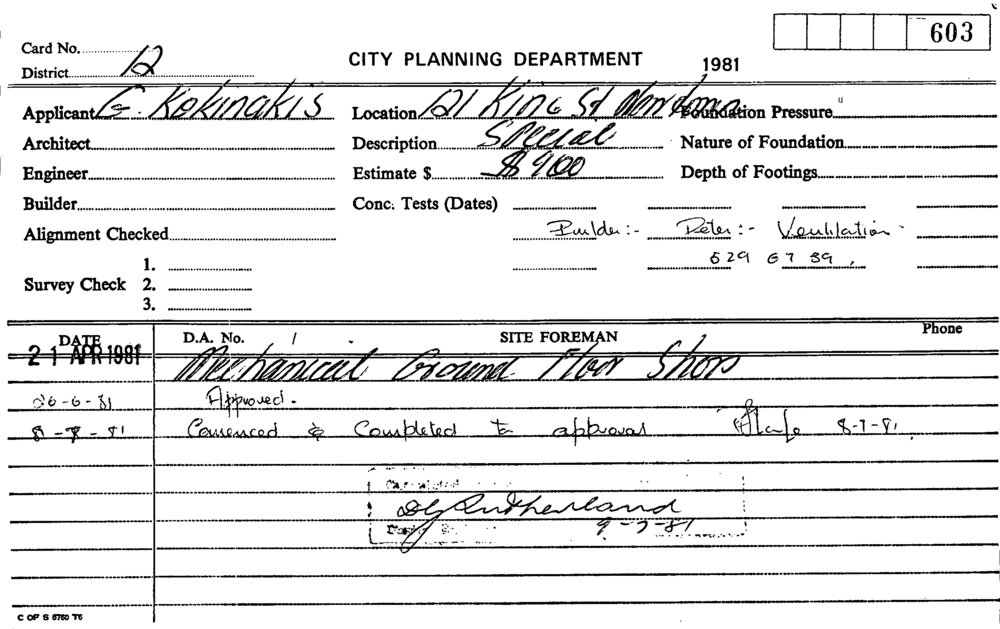 603
Card No.
CITY PLANNING DEPARTMENT 1981
District 12
Applicant G. Kokinakis Location 121 King St Foundation Pressure
Architect Description Special Nature of Foundation
Engineer Estimate $ $900 Depth of Footings
Builder Conc. Tests (Dates)
Alignment Checked Builder:- Peter:- Ventilation
1. 529 67 39
Survey Check 2.
3.
DATE D.A. No. SITE FOREMAN Phone
21 APR 1981 Mechanical Ground Floor Shops
26-6-81 Approved.
Comenced & Completed to approval 8-7-81
Sutherland
9-7-81
C OF S 5760 T6